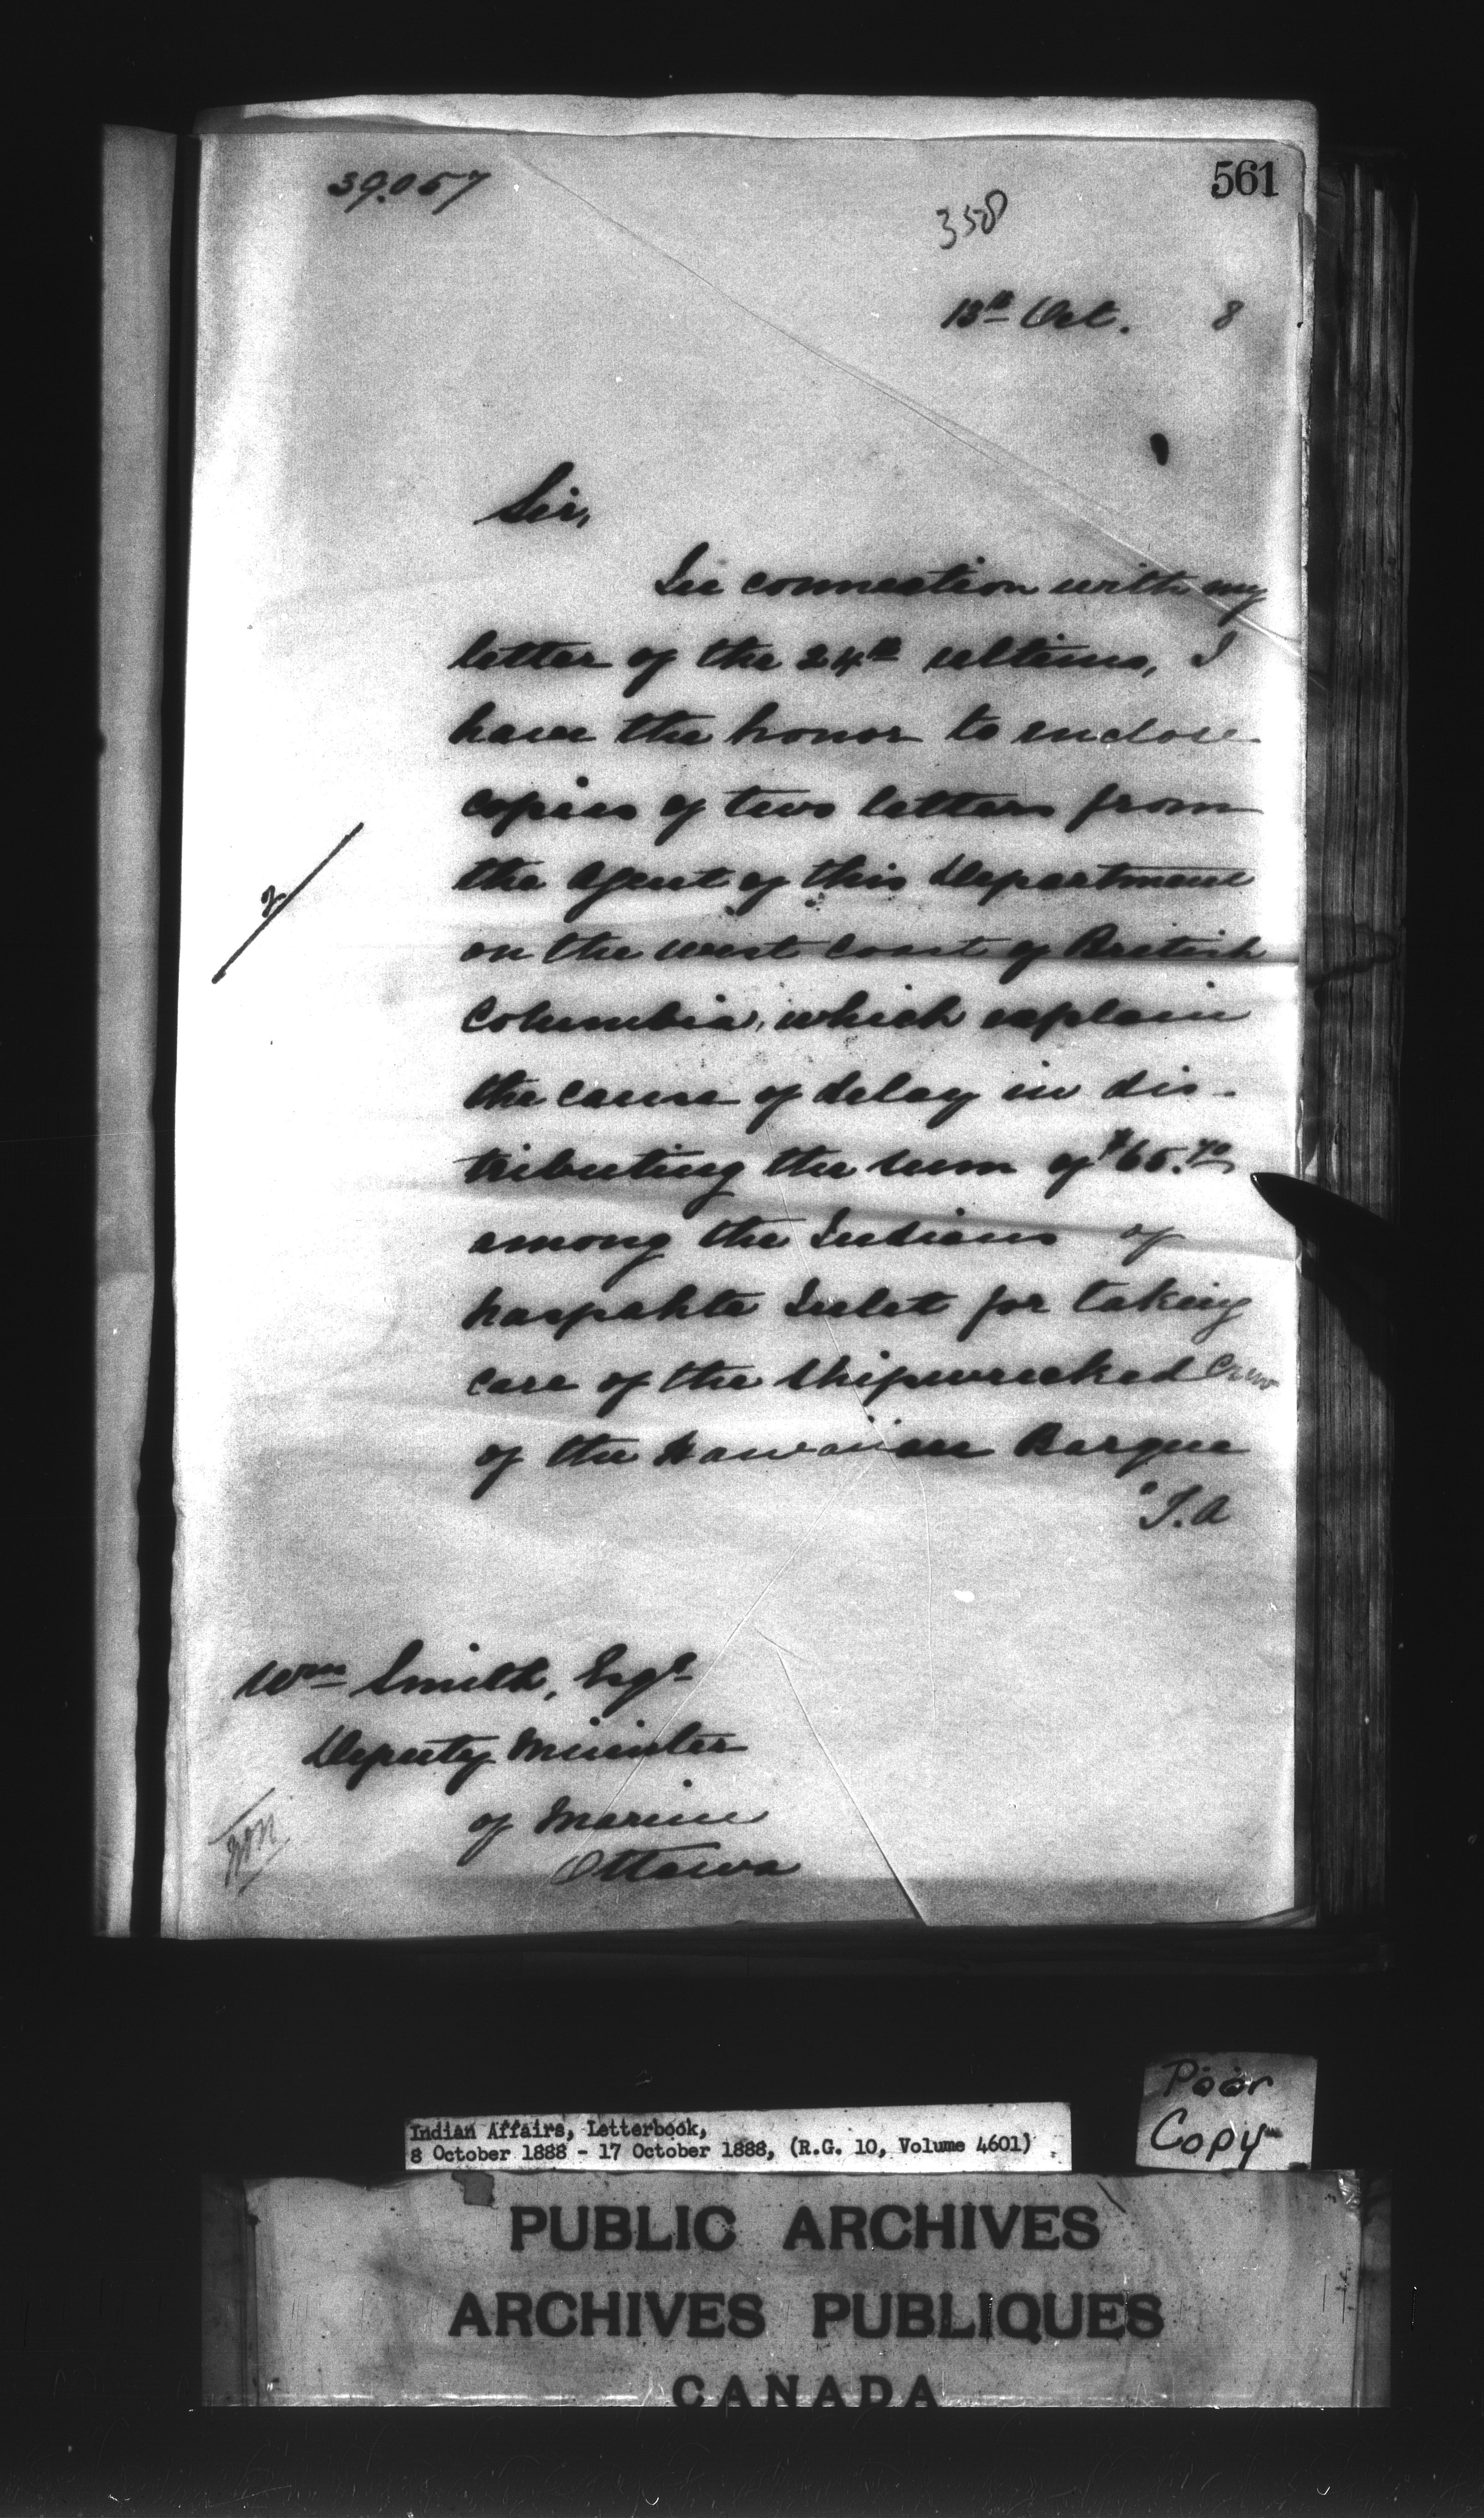 39.057
561
358
13th Oct. 8
Sir,
In connection with my
letter of the 24th ultimo, I
have the honor to enclose
copies of two letters from
the Agent of this Department
on the west Coast of British
Columbia, which explain
the cause of delay in dis-
tributing the sum of $65.70
among the Indians of
Naspahte Inlet for taking
care of the Shipwrecked Crew
of the Hawaiian Barque
2
"I.A
Wm Smith, Esqr
Deputy Minister
of Marine
Ottawa
Poor
Copy
Indian Affairs, Letterbook,
8 October 1888 - 17 October 1888, (R.G. 10, Volume 4601)
PUBLIC ARCHIVES
ARCHIVES PUBLIQUES
CANADA